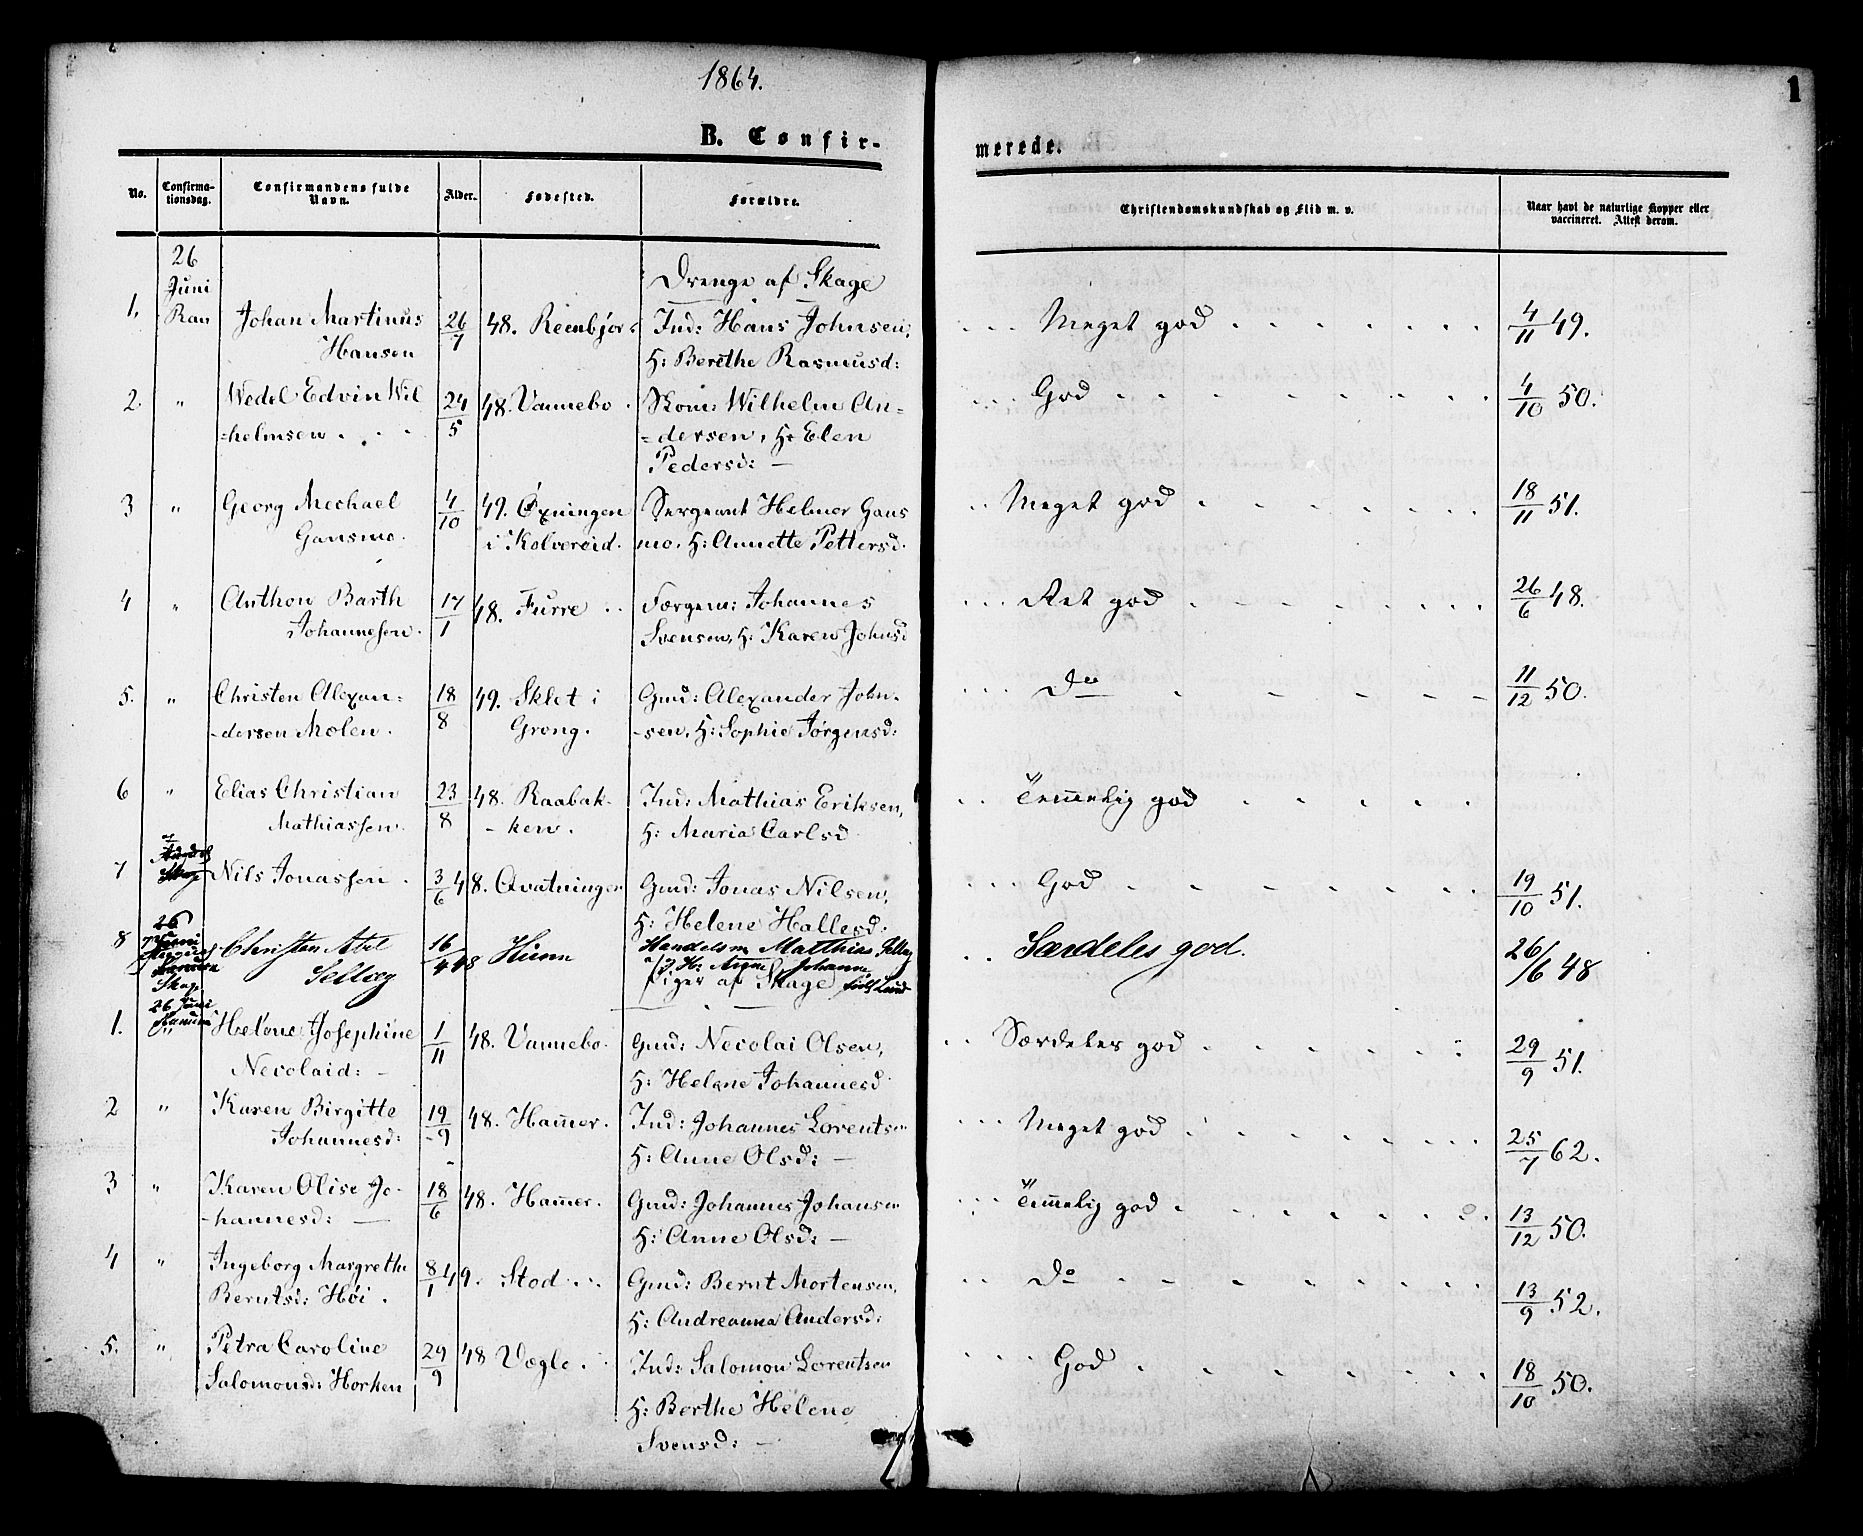 1864.
1
B. Confir-
merede.
No.
Confirma-
tionsdag.
Confirmandens fulde
Navn.
Alder.
Fødested.
Forældre.
Christendomskundskab og Flid m. v.
Naar havt de naturlige Kopper eller
vaccineret. Attest derom.
26
Juni
Ran
Drenge af Skage
1. Johan Martinus 26/7 48. Reenbjør Ind: Hans Johnsen, Meget god 4/11 49.
Hansen H: Berethe Rasmusd:
2. " Wedel Edvin Wil 24/5 48. Vannebo Skom: Wilhelm An= God 4/10 50.
=helmsen. =dersen, H: Elen
Pedersd: —
3 " Georg Mechael 4/10 49. Øxningen Sergeant Helmer Gans Meget god 18/11 51.
Gansmo. i Kolvereid. mo, H: Annette Pettersd.
4 " Anthon Barth 17/1 48. Furre Johannes Ret god 26/6 48.
Johannesen. Svensen, H: Karen Johnsd
5. " Christen Alexan- 18/8 49. Sklet i Gmd: Alexander John- Do 11/12 50.
-dersen Molen. Grong. -sen, H: Sophie Jørgensd:
6 " Elias Christian 23/8 48. Raabak- Ind: Mathias Eriksen, Temmelig god
Mathiassen. -ken. H: Maria Carlsd
7 Nils Jonassen. 3/6 48. Avatningen Gmd: Jonas Nilsen, God 19/10 51.
H: Helene Hallesd:
8 26 Juni Christen Abel 16/4 48 Himo Handelsm Matthias Sellæg Særdeles god. 26/6 48
Skage Sellæg H: Johanna
Piger af Skage
26 Juni
1. " Helene Josephine 1/11 48. Vannebo. Gmd: Necolai Olsen, Særdeles god 29/9 51.
Necolaid: - H: Helene Johannesd
2 " Karen Birgitte 19/9 48. Ham̄er. Ind: Johannes Lorentsen Meget god 25/7 62.
Johannesd: H: Anne Olsd: —
3 " Karen Olise Jo- 18/6 48. Ham̄er. Gmd: Johannes Johansen Tem̄elig god 13/12 50.
-hannesd: — H: Anne Olsd: —
4 " Ingeborg Margrethe 8/1 49. Stod Gmd: Bernt Mortensen, Do 13/9 52.
Berntsd: Høi. H: Andreanna Andersd:
5. " Petra Caroline 29/9 48 Vægle Ind: Salomon Lorentsen God 18/10 50.
Salomonsd: Horken H: Berthe Helene
Svensd: —